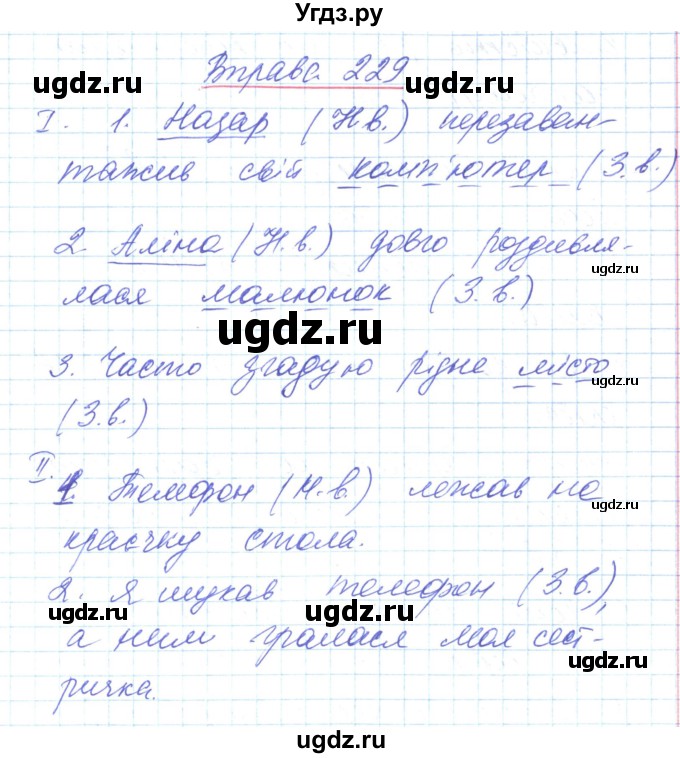 Угдз.ру
Вправа 229
ugdz.ru ugdz.ru
I. 1. Назар (Н.в.) перезаван-
тажив свій комп'ютер (З.в.)
ugdz.ru
2. Аліна (Н.в.) довго роздивля-
ugdz.ru
лася малюнок (З.в.)
ugdz.ru
3. Часто згадую рідне місто
ugdz.ru
(З.в.)
II. 1. Телефон (Н.в.) лежав на
ugdz.ru
краєчку стола.
2. Я шукав телефон (З.в.),
ugdz.ru ugdz.ru
а ним гралася моя сест-
ugdz.ru
ричка.
ugdz.ru